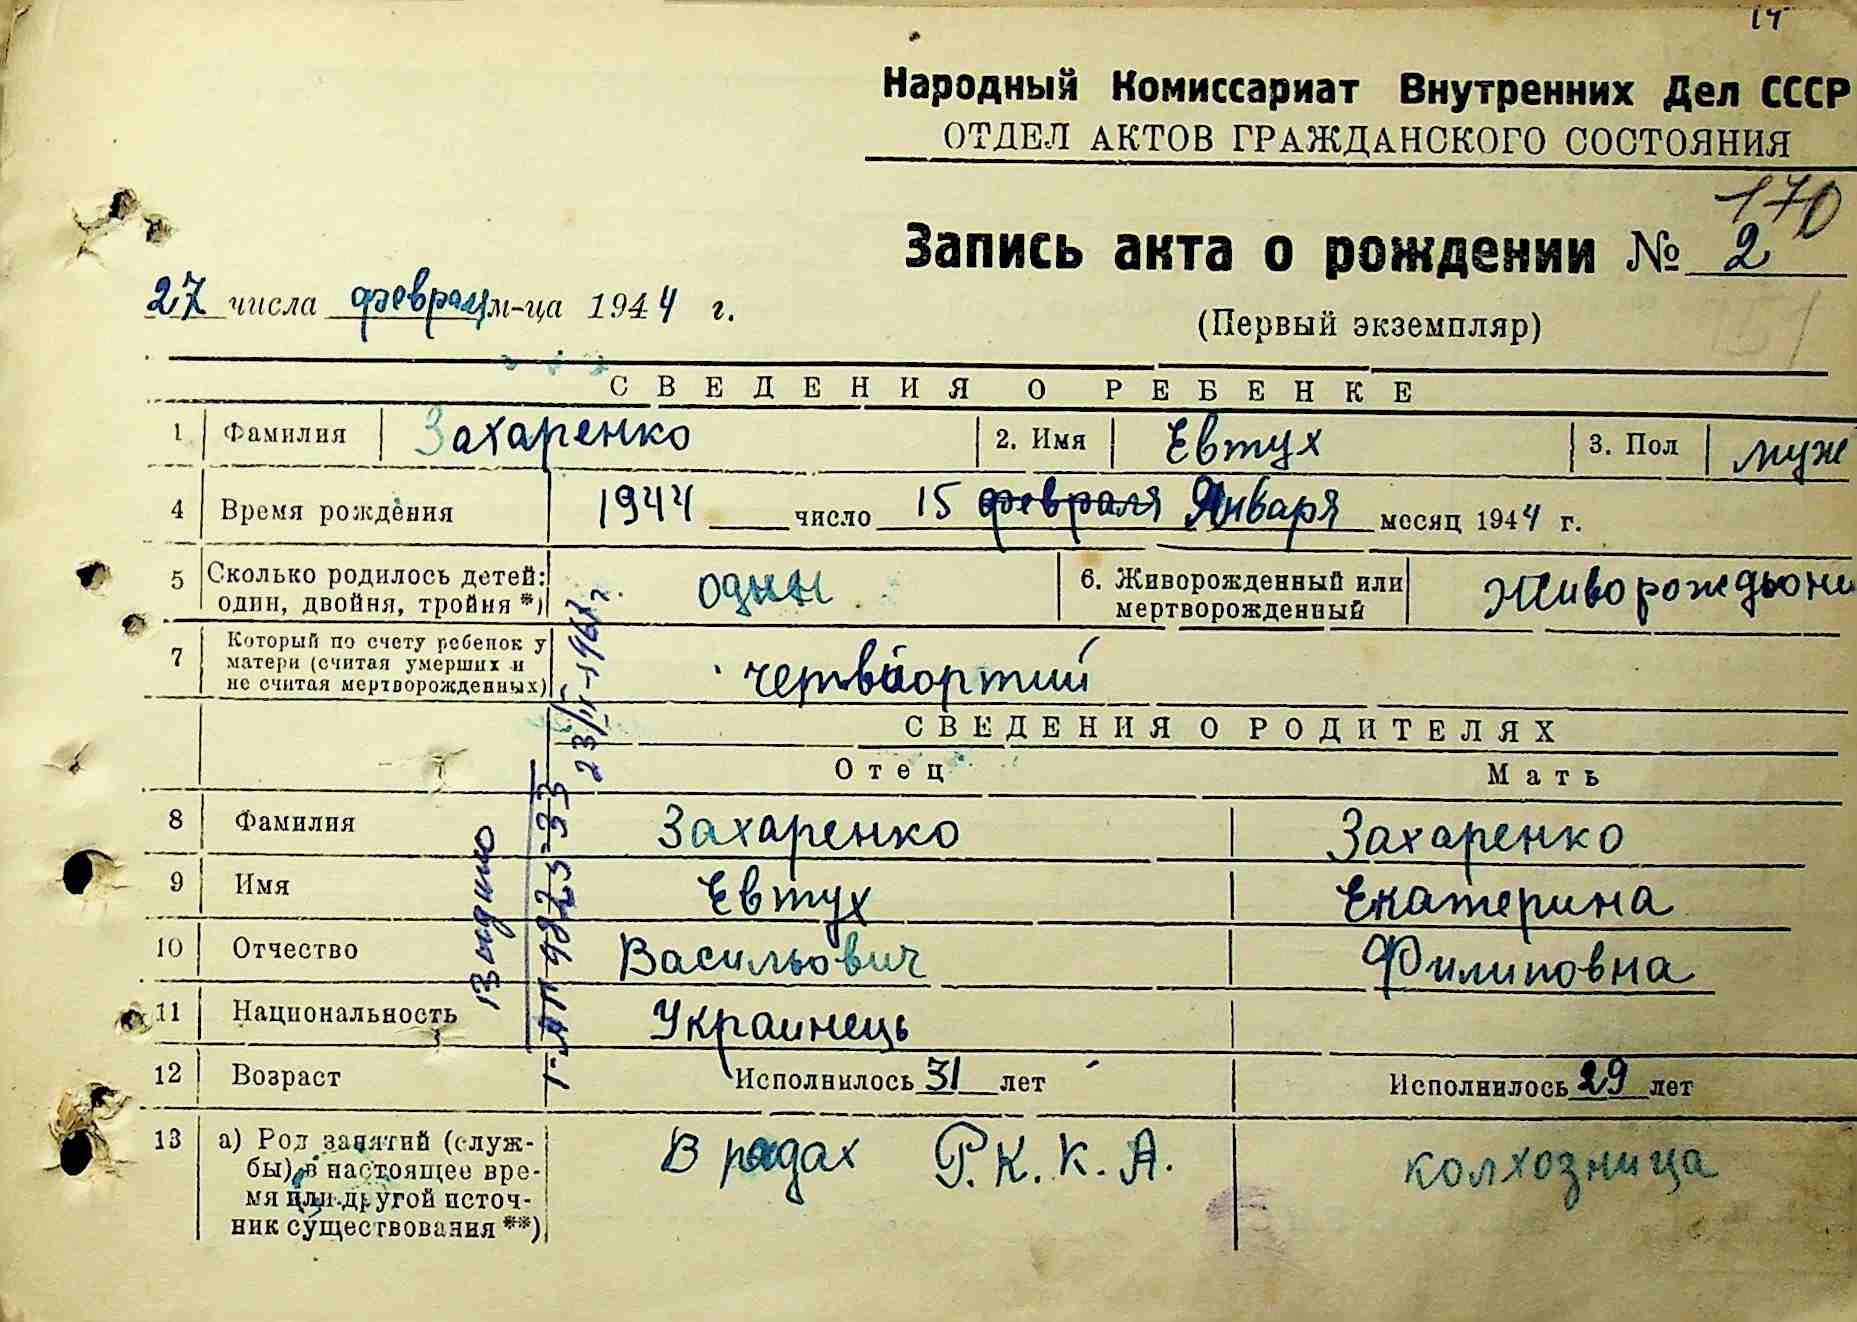 14
Народный Комиссариат Внутренних Дел СССР
ОТДЕЛ АКТОВ ГРАЖДАНСКОГО СОСТОЯНИЯ
170
Запись акта о рождении № 2
27 числа февраля м-ца 1944 г.
(Первый экземпляр)
СВЕДЕНИЯ О РЕБЕНКЕ
1 Фамилия Захаренко 2. Имя Евтух 3. Пол муж
4 Время рождения 1944 число 15 февраля Января месяц 1944 г.
5 Сколько родилось детей: один, двойня, тройня *) один 6. Живорожденный или мертворожденный Живорождьони
7 Который по счету ребенок у матери (считая умерших и не считая мертворожденных) четвйортий
СВЕДЕНИЯ О РОДИТЕЛЯХ
Отец Мать
8 Фамилия Захаренко Захаренко
9 Имя Евтух Екатерина
10 Отчество Васильович Филиповна
11 Национальность Украинець
12 Возраст Исполнилось 31 лет Исполнилось 29 лет
13 а) Род занятий (служ-
бы) в настоящее вре-
мя или другой источ-
ник существования **)
В рядах Р.К.К.А. колхозница